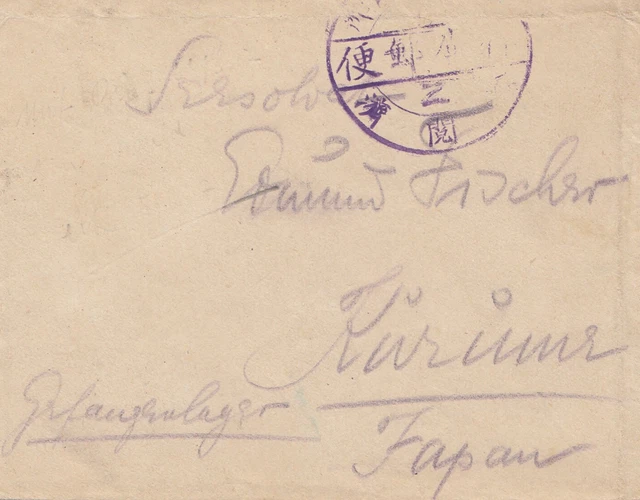 郵便
閲
Edmund Fischer
Kurume
Gefangenlager
Japan